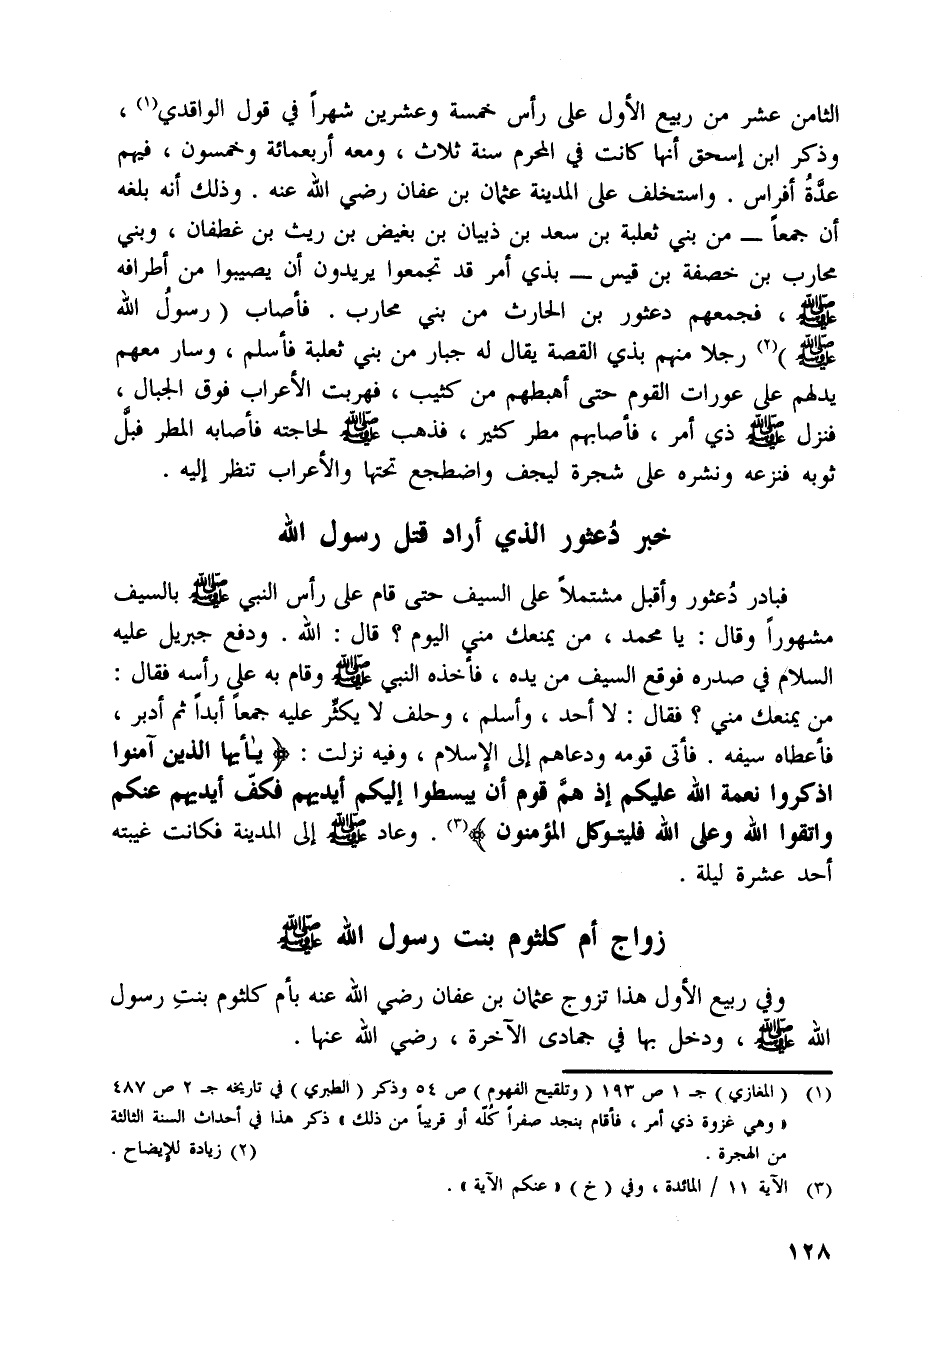 الثامن عشر من ربيع الأول على رأس خمسة وعشرين شهراً في قول الواقدي(١) ،
وذكر ابن إسحق أنها كانت في المحرم سنة ثلاث ، ومعه أربعمائة وخمسون ، فيهم
عدَّةُ أفراس . واستخلف على المدينة عثمان بن عفان رضي الله عنه . وذلك أنه بلغه
أن جمعاً — من بني ثعلبة بن سعد بن ذبيان بن بغيض بن ريث بن غطفان ، وبني
محارب بن خصفة بن قيس — بذي أمر قد تجمعوا يريدون أن يصيبوا من أطرافه
ﷺ ، فجمعهم دعثور بن الحارث من بني محارب . فأصاب ( رسولُ الله
ﷺ )(٢) رجلا منهم بذي القصة يقال له جبار من بني ثعلبة فأسلم ، وسار معهم
يدلهم على عورات القوم حتى أهبطهم من كثيب ، فهربت الأعراب فوق الجبال ،
فنزل ﷺ ذي أمر ، فأصابهم مطر كثير ، فذهب ﷺ لحاجته فأصابه المطر فبلَّ
ثوبه فنزعه ونشره على شجرة ليجف واضطجع تحتها والأعراب تنظر إليه .
خبر دُعثور الذي أراد قتل رسول الله
فبادر دُعثور وأقبل مشتملاً على السيف حتى قام على رأس النبي ﷺ بالسيف
مشهوراً وقال : يا محمد ، من يمنعك مني اليوم ؟ قال : الله . ودفع جبريل عليه
السلام في صدره فوقع السيف من يده ، فأخذه النبي ﷺ وقام به على رأسه فقال :
من يمنعك مني ؟ فقال : لا أحد ، وأسلم ، وحلف لا يكثِّر عليه جمعاً أبداً ثم أدبر ،
فأعطاه سيفه . فأتى قومه ودعاهم إلى الإسلام ، وفيه نزلت : ﴿ يٰأيها الذين آمنوا
اذكروا نعمة الله عليكم إذ همَّ قوم أن يبسطوا إليكم أيديهم فكفّ أيديهم عنكم
واتقوا الله وعلى الله فليتوكل المؤمنون ﴾(٣) . وعاد ﷺ إلى المدينة فكانت غيبته
أحد عشرة ليلة .
زواج أم كلثوم بنت رسول الله ﷺ
وفي ربيع الأول هذا تزوج عثمان بن عفان رضي الله عنه بأم كلثوم بنتِ رسول
الله ﷺ ، ودخل بها في جمادى الآخرة ، رضي الله عنها .
(١) ( المغازي ) جـ ١ ص ١٩٣ ( وتلقيح الفهوم ) ص ٥٤ وذكر ( الطبري ) في تاريخه جـ ٢ ص ٤٨٧
« وهي غزوة ذي أمر ، فأقام بنجد صفراً كُلّه أو قريباً من ذلك » ذكر هذا في أحداث السنة الثالثة
من الهجرة . (٢) زيادة للإيضاح .
(٣) الآية ١١ / المائدة ، وفي ( خ ) « عنكم الآية » .
١٢٨